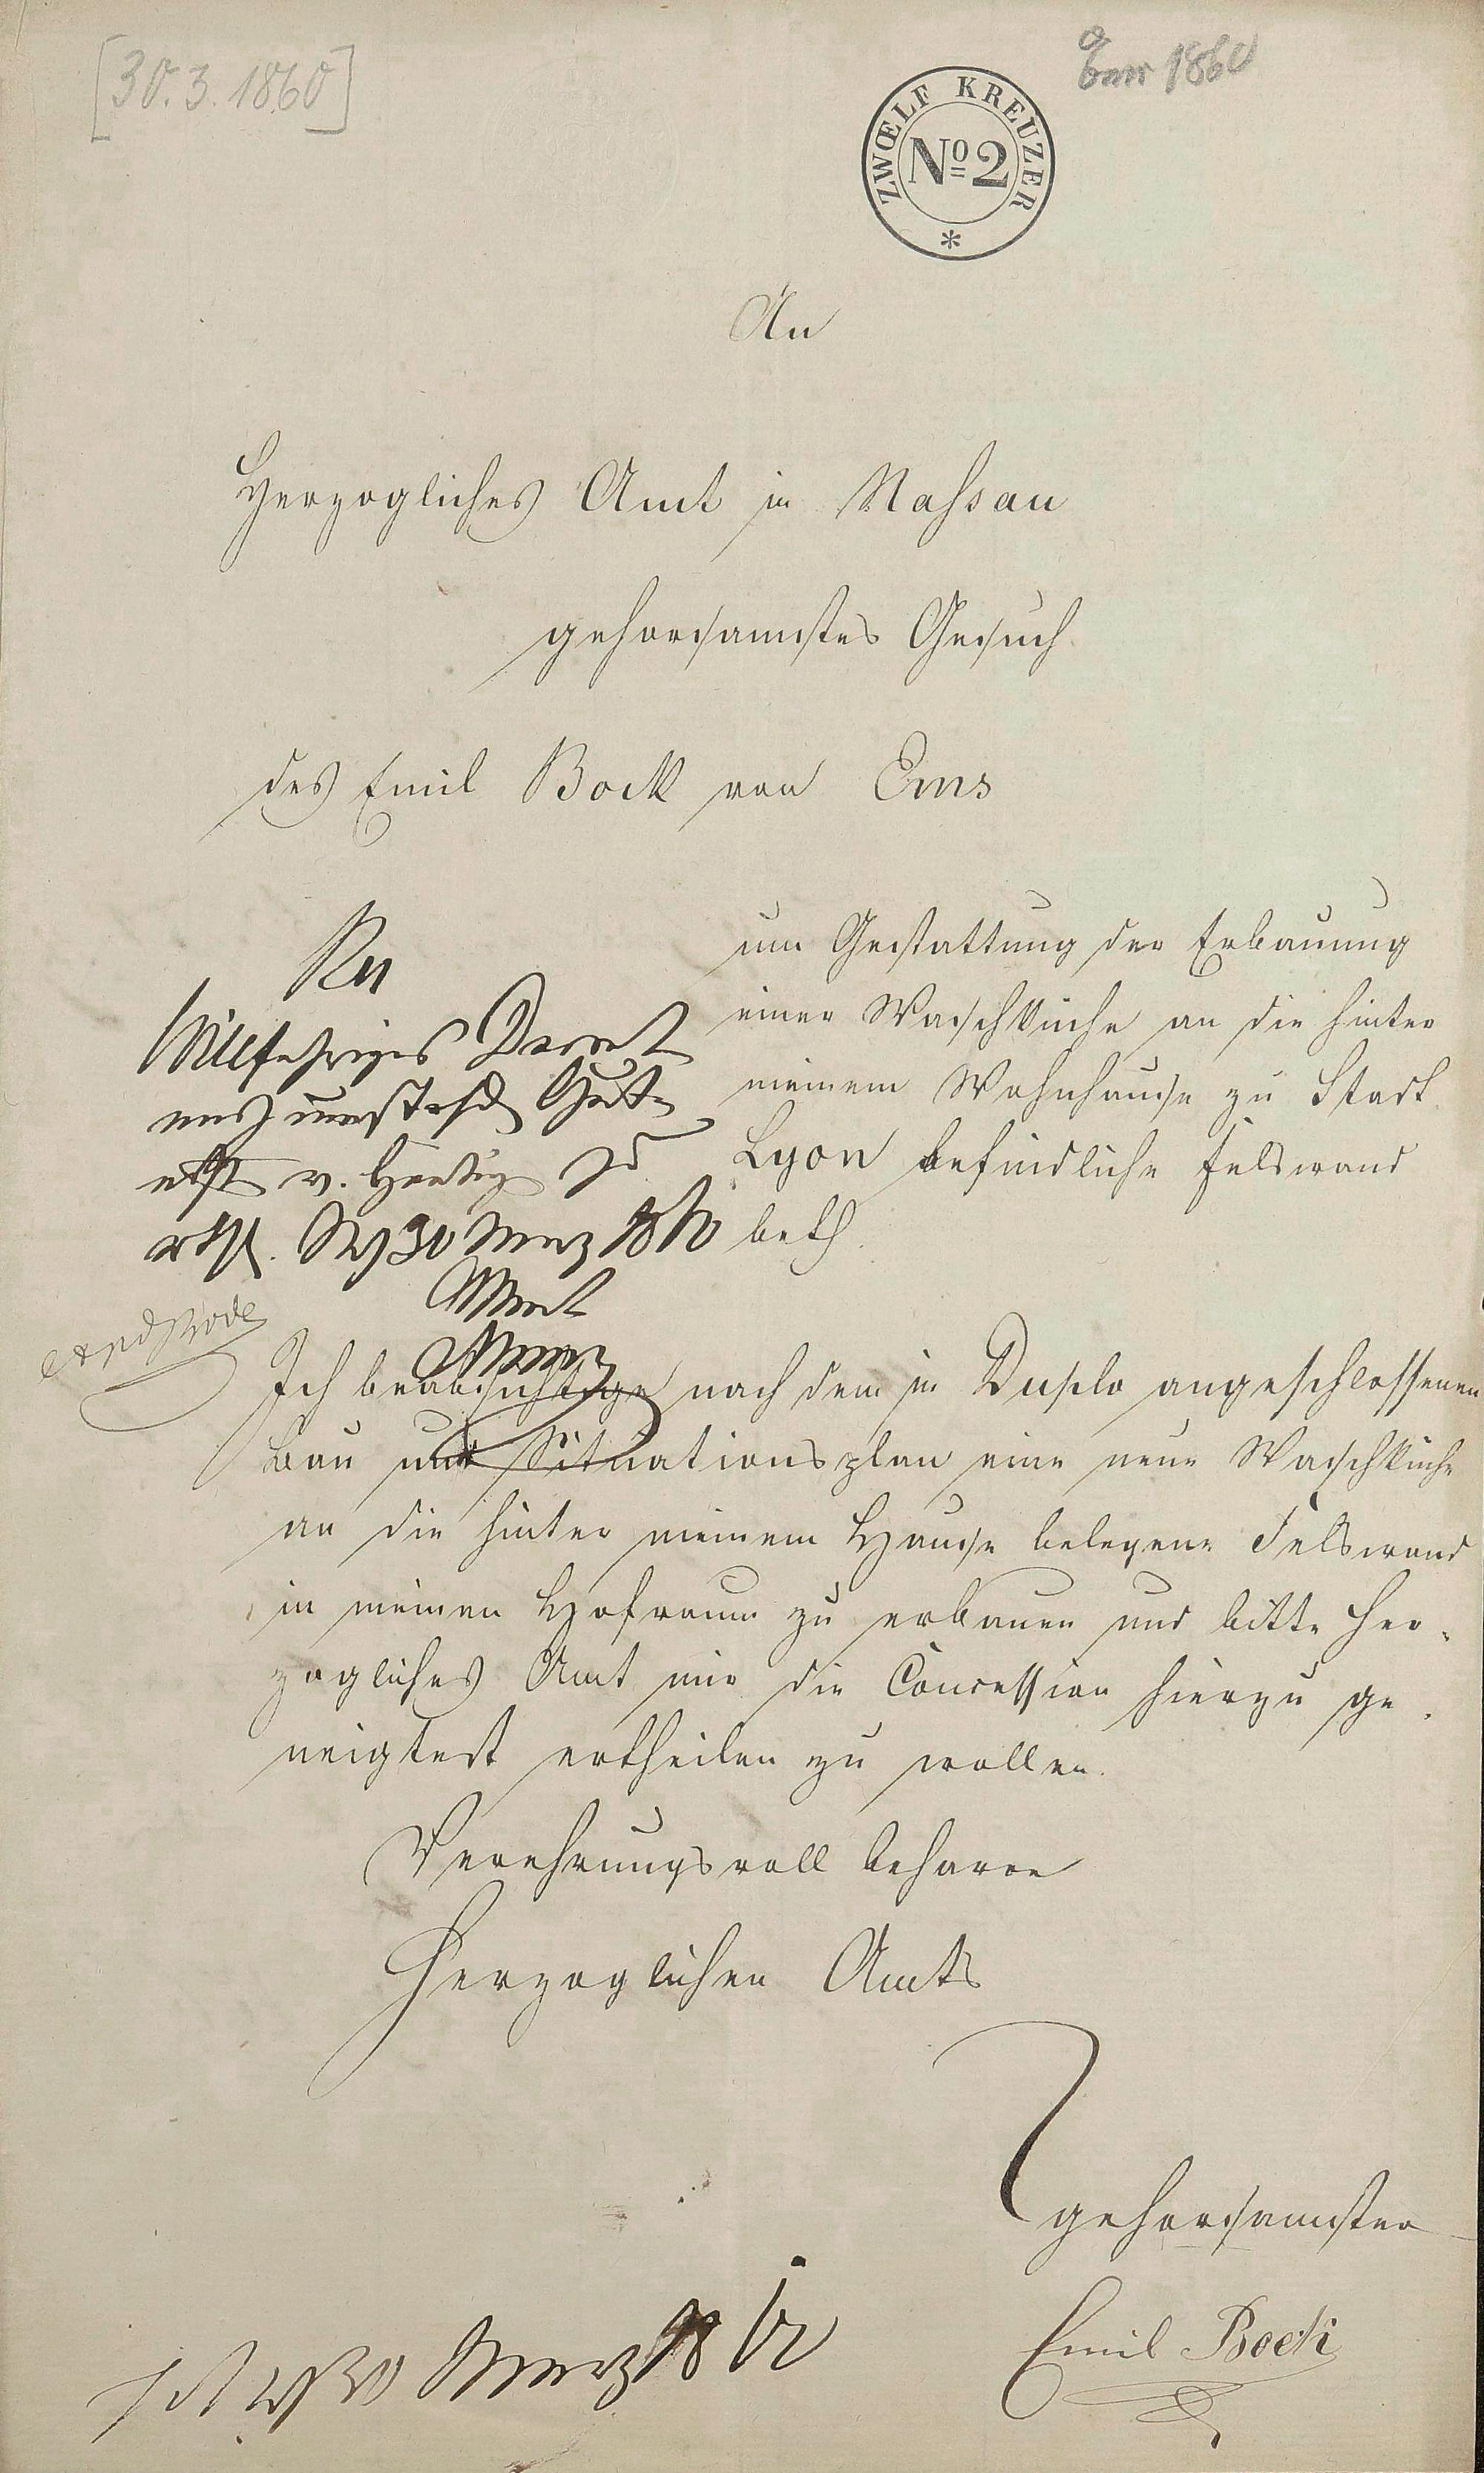 [30.3.1860]
Ems 1860
ZWŒLF KREUZER
No 2
An
Herzogliches Amt in Nassau
gehorsamstes Gesuch
des Emil Bock von Ems
um Gestattung der Erbauung
einer Waschküche an die hinter
meinem Wohnhause zu Stadt
Lyon befindliche Felswand
betr.
Willfahriges Decret
v.
30 Merz 1860
Amt
Ich beabsichtige nach dem in Duplo angeschlossenen
Bau und Situationsplan eine neue Waschküche
an die hinter meinem Hause belegene Felswand
in meinen Hofraum zu erbauen und bitte Her-
zogliches Amt mir die Concession hierzu ge-
neigtest ertheilen zu wollen.
Verehrungsvoll beharre
Herzoglichen Amts
gehorsamster
Emil Bock
30 Merz 1860